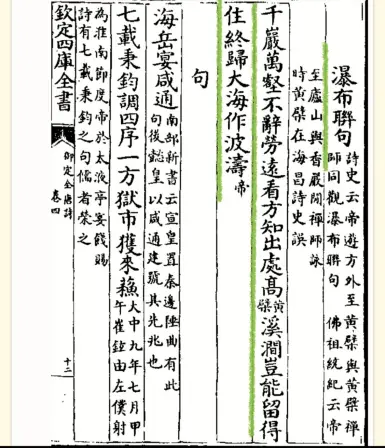 瀑布聯句
詩史云帝遊方外至黄檗與黄檗禪
師同觀瀑布聯句 佛祖統紀云帝
至廬山與香嚴閒禪師詠
時黄檗在海昌詩史誤
千巖萬壑不辭勞遠看方知出處髙黄檗溪澗豈能留得
住終歸大海作波濤帝
句
海岳宴咸通
南部新書云宣皇置秦邊陲曲有此
句後懿皇以咸通建號其先兆也
七載秉鈞調四序一方獄市獲來蘓
大中九年七月甲
午崔鉉由左僕射
為淮南節度帝於太液亭宴餞賜
詩有七載秉鈞之句儒者榮之
欽定四庫全書
御定全唐詩
卷四
十二